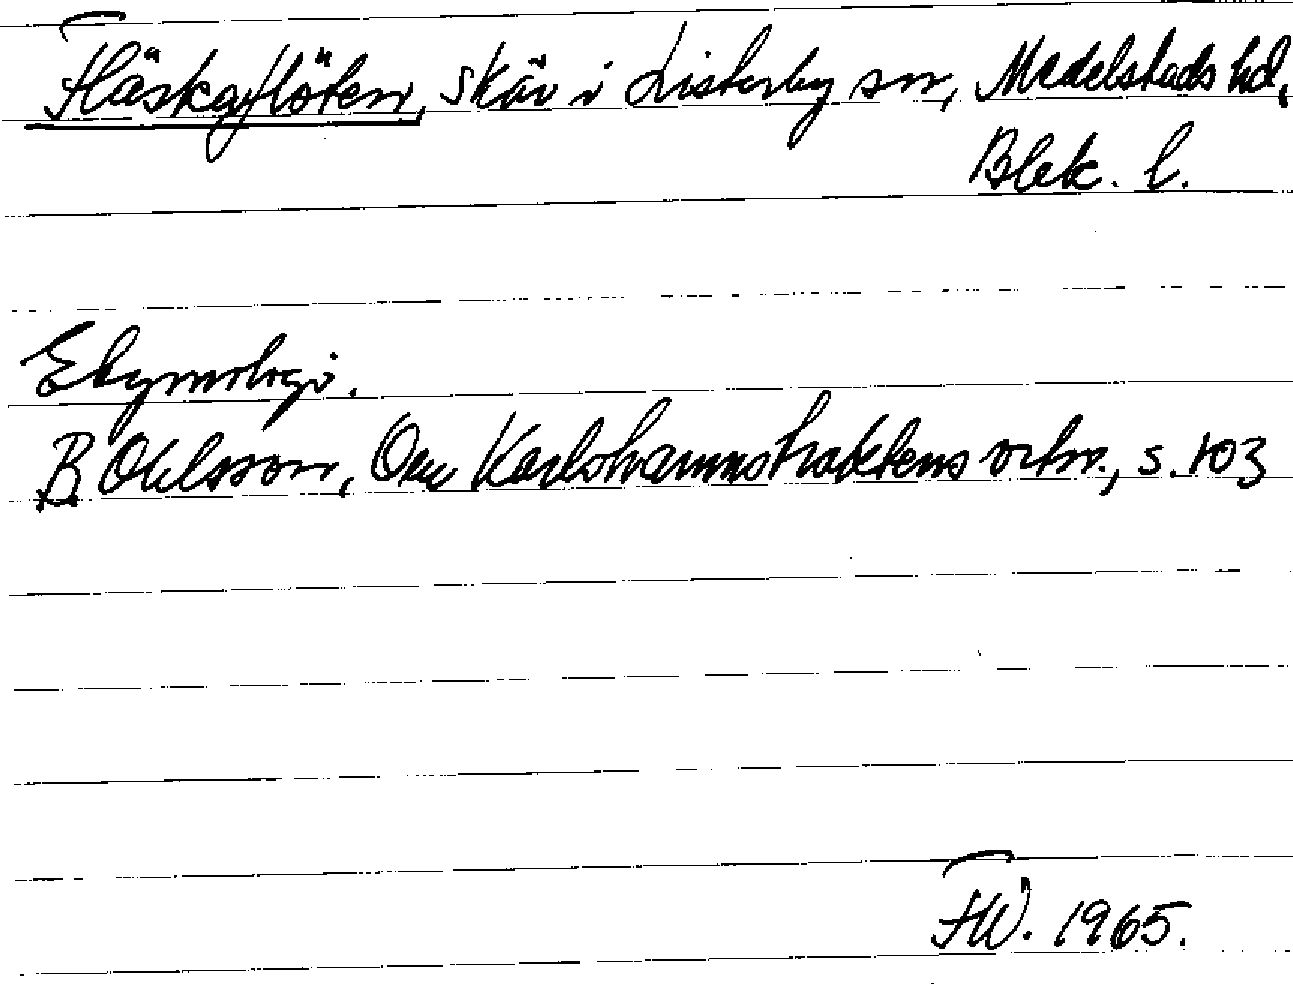 Fläskaflöten, skär i Listerby sn, Medelstads hd,
Blek. l.
Etymologi.
B Ohlsson, Om Karlshamnstraktens ortn., s. 103
FW. 1965.